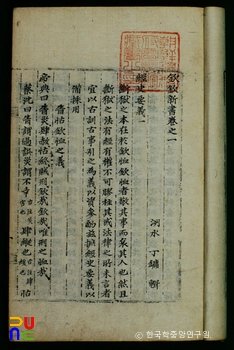 欽欽新書卷之一
洌水 丁鏞 輯
經史要義一
斷獄之本在於欽恤欽恤者敬其事而哀其人也然且
斷獄之法有經有權不可膠柱其或法律之所未言者
宜以古訓古事引之爲義以資參酌兹摭經史要義以
備採用
眚怙欽恤之義
帝典曰眚災肆赦怙終賊刑欽哉欽哉惟刑之恤哉
蔡沈曰眚謂過誤災謂不幸 肆縱也 怙
한국학중앙연구원